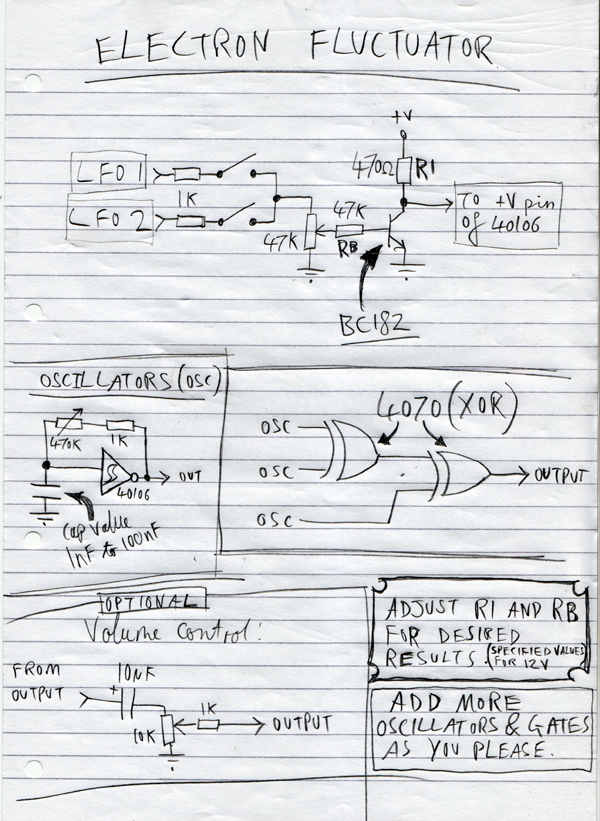 ELECTRON FLUCTUATOR
+V
LFO 1
470Ω R1
1K
LFO 2
47K
47K
RB
TO +V pin
of 40106
BC182
OSCILLATORS (OSC)
470K
1K
OUT
40106
Cap Value
1nF to 100nF
4070 (XOR)
OSC
OSC
OSC
OUTPUT
OPTIONAL
Volume Control:
FROM
OUTPUT
+
10K
1K
OUTPUT
ADJUST R1 AND RB
FOR DESIRED
RESULTS. (SPECIFIED VALUES
FOR 12V
ADD MORE
OSCILLATORS & GATES
AS YOU PLEASE.